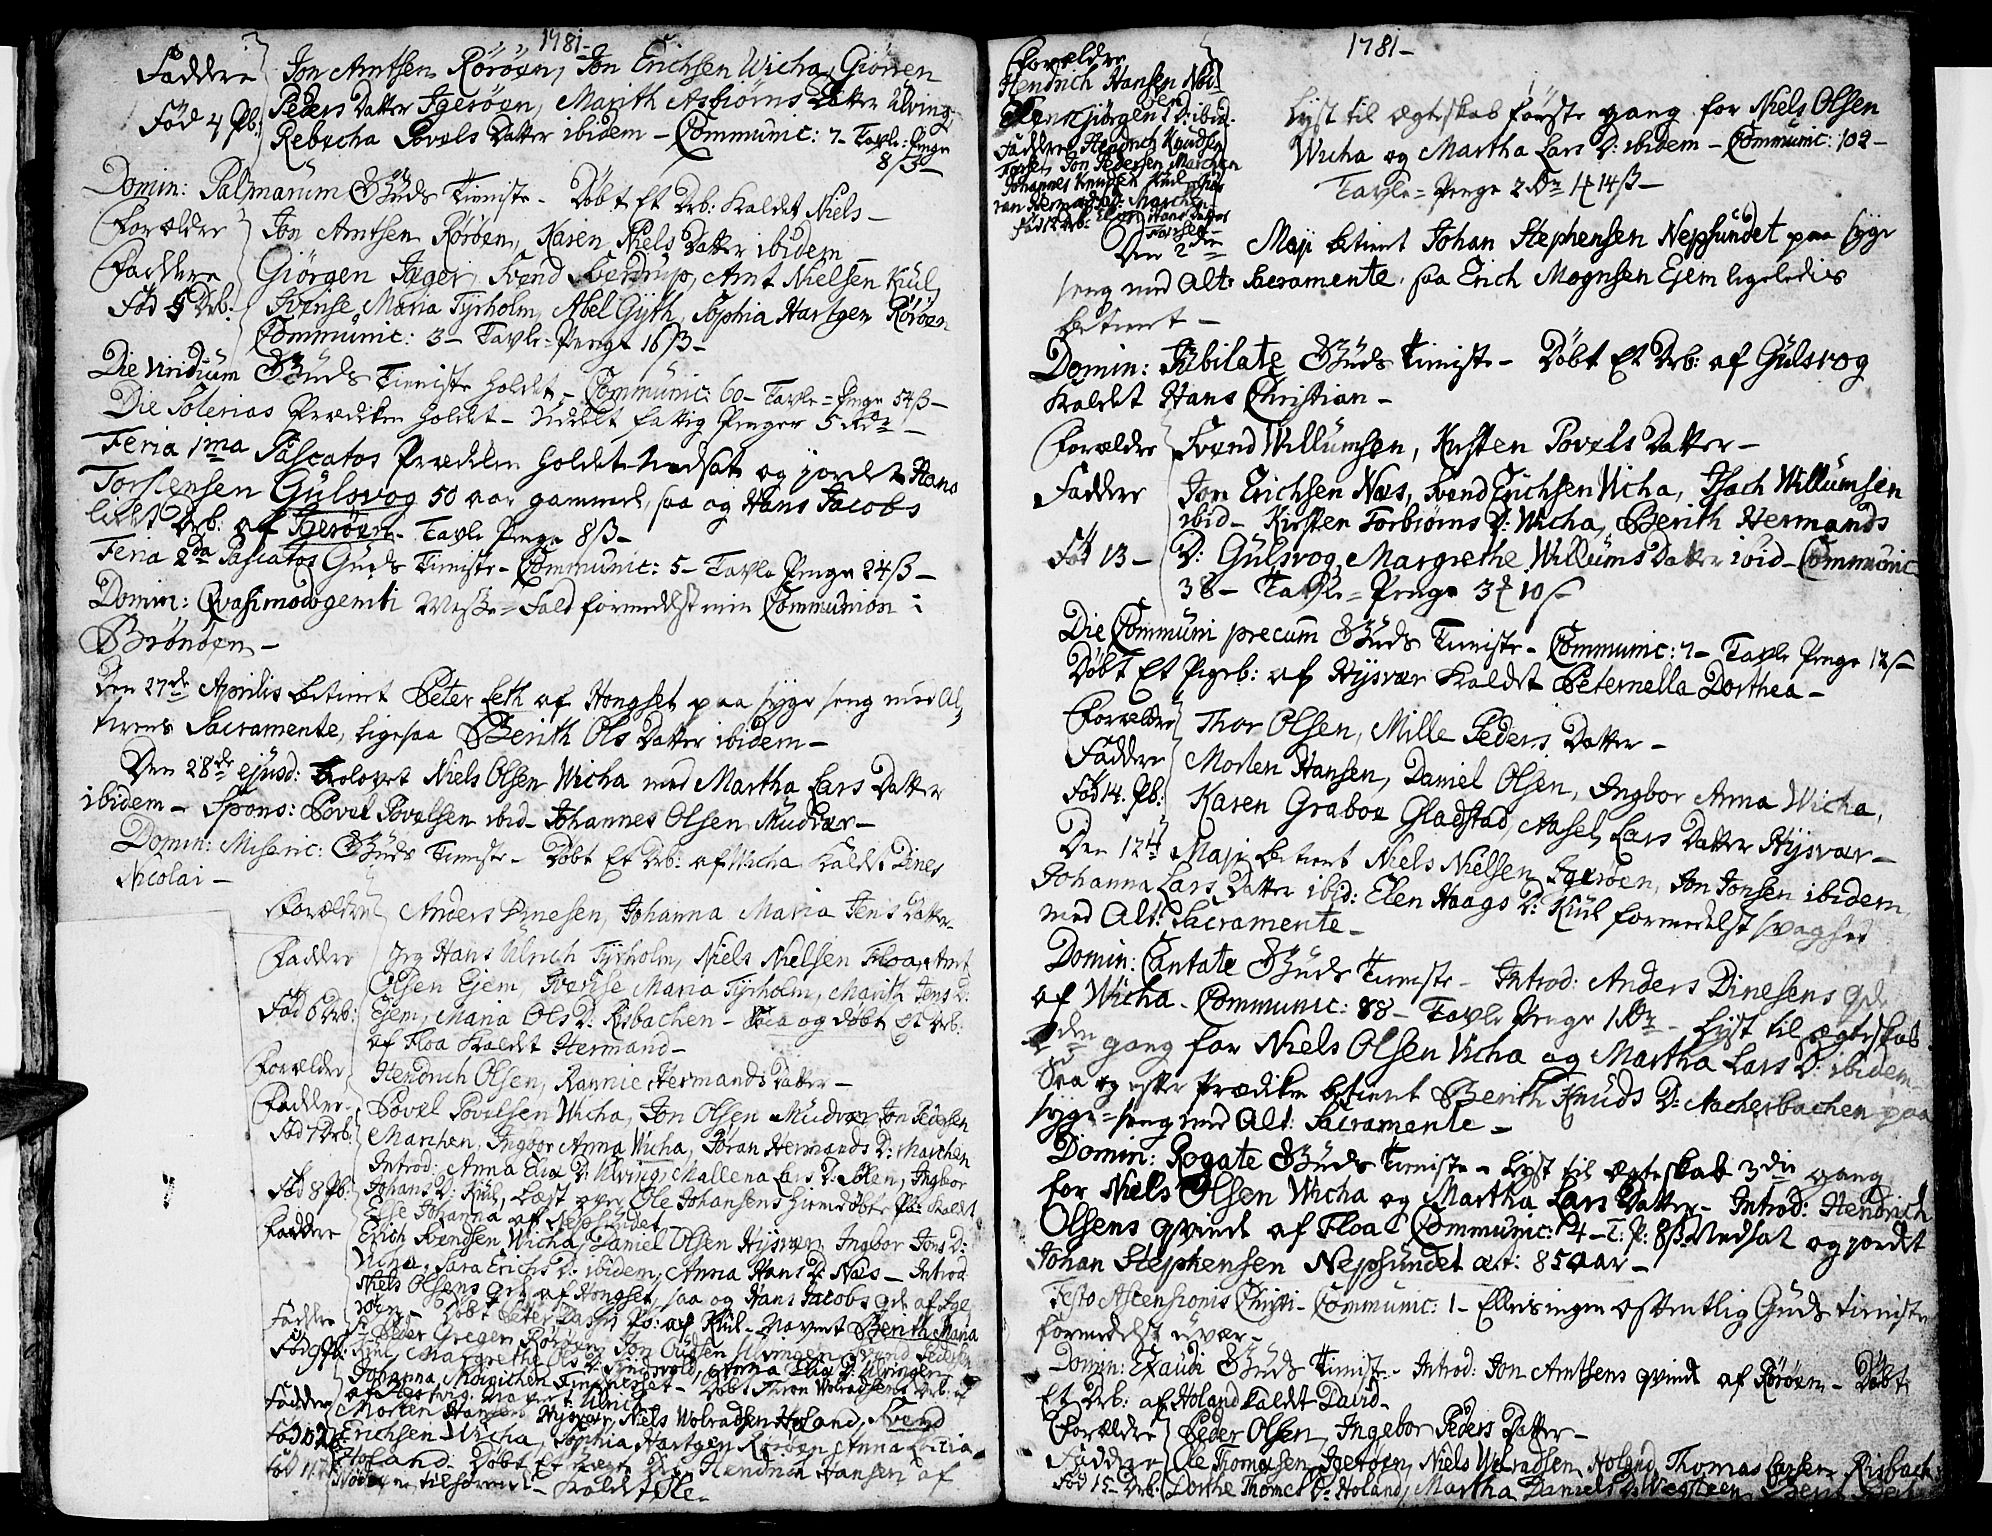 1781-
Faddre Jon Amtsen Röröen, Jon Erichsen Wicha, Giören
Peders Datter Igeröen, Marith Asbiörns Datter Ulving
Föd 4 Pb: Rebecha Povels Datter ibidem - Communic: 7- Tavle-Penge
8ß-
Domin: Palmarum Guds Tieniste - Döbt Et Drb: kaldet Niels -
Forældre Jon Amtsen Röröen, Karen Niels Datter ibidem
Faddre Giörgen Jæger, Svend, Amt Nielsen Kiul,
Föd 5 Drb: Maria Tyrholm, Abel Gyth, Sophia Hartgen Röröen
Communic: 3- Tavle-Penge 16ß-
Die Viridium Guds Tieniste holdet - Communic: 60- Tavle-Penge 54ß-
Die Soterias Prædiken holdet - Uddelt fattig Penger 5 Rdr -
Feria 1ma Pascatos Prædiken holdet - Nedsat og jordet Hans
Torstensen Gulsvog 50 aar gammel, saa og Hans Jacobs
lidet Drb: af Igeröen - Tavle Penge 8ß-
Feria 2da Pascatos Guds Tieniste - Communic: 5- Tavle Penge 24ß-
Domin: Qvasimodogeniti Messe-Fald formedelst min Communion i
Brönöen -
Den 27de Aprilis betient Peter Leth af Hongset paa syge seng med Al-
terens Sacramente, ligesaa Berith Ols Datter ibidem -
Den 28de ejusd: Trolovet Niels Olsen Wicha med Martha Lars Datter
ibidem - Spons: Povel Povelsen ibid - Johannes Olsen Mudvær -
Domin: Miseric: Guds Tieniste - Döbt Et Drb: af Wicha kaldt Dines
Nicolai -
Forældre Anders Dinesen, Johanna Maria Jens Datter -
Faddre Jeg Hans Ulrich Tyrholm, Niels Nielsen Floa, Amt
Olsen Ejem, Maria Tyrholm, Marith Jens D:
Föd 6 Drb: Ejem, Maria Ols D: Risbachen - Saa og döbt Et Drb:
af Floa kaldet Hermand -
Forældre Hendrich Olsen, Rannie Hermands Datter -
Faddre Povel Povelsen Wicha, Jon Olsen Mudvær Jon Pedersen
Föd 7 Drb: Marchen, Ingbor Anna Wicha, Joran Hermands D: Marchen
Introd: Anna Elia D: Ulving, Mallena Lars D: Solen, Ingbor
Föd 8 Pb: Johans D: Kiul, Læst over Ole Johansens hiemedöbte Pb: kaldet
Else Johanna af Nepsundet
Faddre Erich Svendsen Wicha, Daniel Olsen Hysvær, Ingbor Jons D:
Wicha, Sara Erichs D: ibidem, Anna Hans D: Næs - Introd
Niels Olsens Qv: af Hongset, saa og Hans Jacobs qv. af Ige
röen - Döbt Peter Pb: af Kiul - Navnet Berith Maria
Faddre Peder Gregen Röröen, Jon Svend Pedersen
Föd 9 Pb: Kiul, Margrethe Ols D: Anna Elia D: Ulvingen,
Johanna - Döbt Thron Wolradsens Drb: af
Navnet: Ulrich
Faddre Morten Hansen Hysvær, Niels Wolradsen Holand, Svend
Föd 10 Drb: Erichsen Wicha, Sophia Hartgen Röröen, Anna Lucia
Föd 11 Holand - Döbt Et Drb: Hendrich Hansen af
tilhörende - kaldet Ole -
Forældre
Hendrich Hansen
Giörgens D: ibid.
Faddre Hendrich Knudsen
Jon Pedersen Marchen
Johannes Knudsen Kiul
Hermands D: Marchen
Föd 12 Drb: Elen Hans Datter
1781-
Lyst til ægteskab förste gang for Niels Olsen
Wicha og Martha Lars D: ibidem - Communic: 102 -
Tavle-Penge 2 Rdr 14ß-
Den 2den Maji betient Johan Stephensen Nepsundet paa syge
seng med Alt: Sacramente, saa Erich Mognsen Ejem ligeledes
betient -
Domin: Jubilate Guds Tieniste - Döbt Et Drb: af Gulsvog
kaldet Hans Christian -
Forældre Svend Willumsen, Kirsten Povels Datter -
Faddre Jon Erichsen Næs, Svend Erichsen Wicha, Isach Willumsen
ibid - Kirsten Torbiörns D: Wicha, Berith Hermands
Föd 13 - D: Gulsvog, Margrethe Willums Datter ibid - Communic
38 - Tavle-Penge 3 10ß
Die Communi precum Guds Tieniste - Communic: 7 - Tavle Penge 12ß-
Döbt Et Pigeb: af Hysvær kaldet Peternella Dorthea -
Forældre Thor Olsen, Mille Peders Datter -
Faddre Morten Hansen, Daniel Olsen, Ingbor Anna Wicha,
Föd 14. Pb: Karen Graboe Gladstad, Aasel Lars Datter Hysvær -
Den 12te Maji betient Niels Nielsen Igeröen, Jon Jonsen ibidem,
Johanna Lars Datter ibid: Elen Haags D: Kiul formedelst svaghed
med Alt: Sacramente -
Domin: Cantate Guds Tieniste - Introd: Anders Dinesens qv.
af Wicha - Communic: 88 - Tavle Penge 1 Rdr - Lyst til ægteskab
2den gang for Niels Olsen Wicha og Martha Lars D: ibidem -
Saa og efter Prædiken betient Berith Knuds D: Aacherbachen paa
syge-seng med Alt: Sacramente -
Domin: Rogate Guds Tieniste - Lyst til ægteskab 3die gang
for Niels Olsen Wicha og Martha Lars Datter - Introd: Hendrich
Olsens qvinde af Floa Communic: 4 - T: P: 8ß Nedsat og jordet
Johan Stephensen Nepsundet æt: 85 aar -
Festo Ascensionis Christi - Communic: 1 - Ellers ingen offentlig Guds tieniste
formedelst uvær -
Domin: Exaudi Guds Tienist - Introd: Jon Amtsens qvinde af Röröen - Döbt
Et Drb: af Holand kaldt David -
Forældre Peder Olsen, Ingebor Peders Datter -
Faddre Ole Thomesen Igeröen, Niels Wolradsen Holand, Thomas Larsen Risbach
Föd 15 Drb: Dorthe Thomes D: Holand, Martha Daniels D: